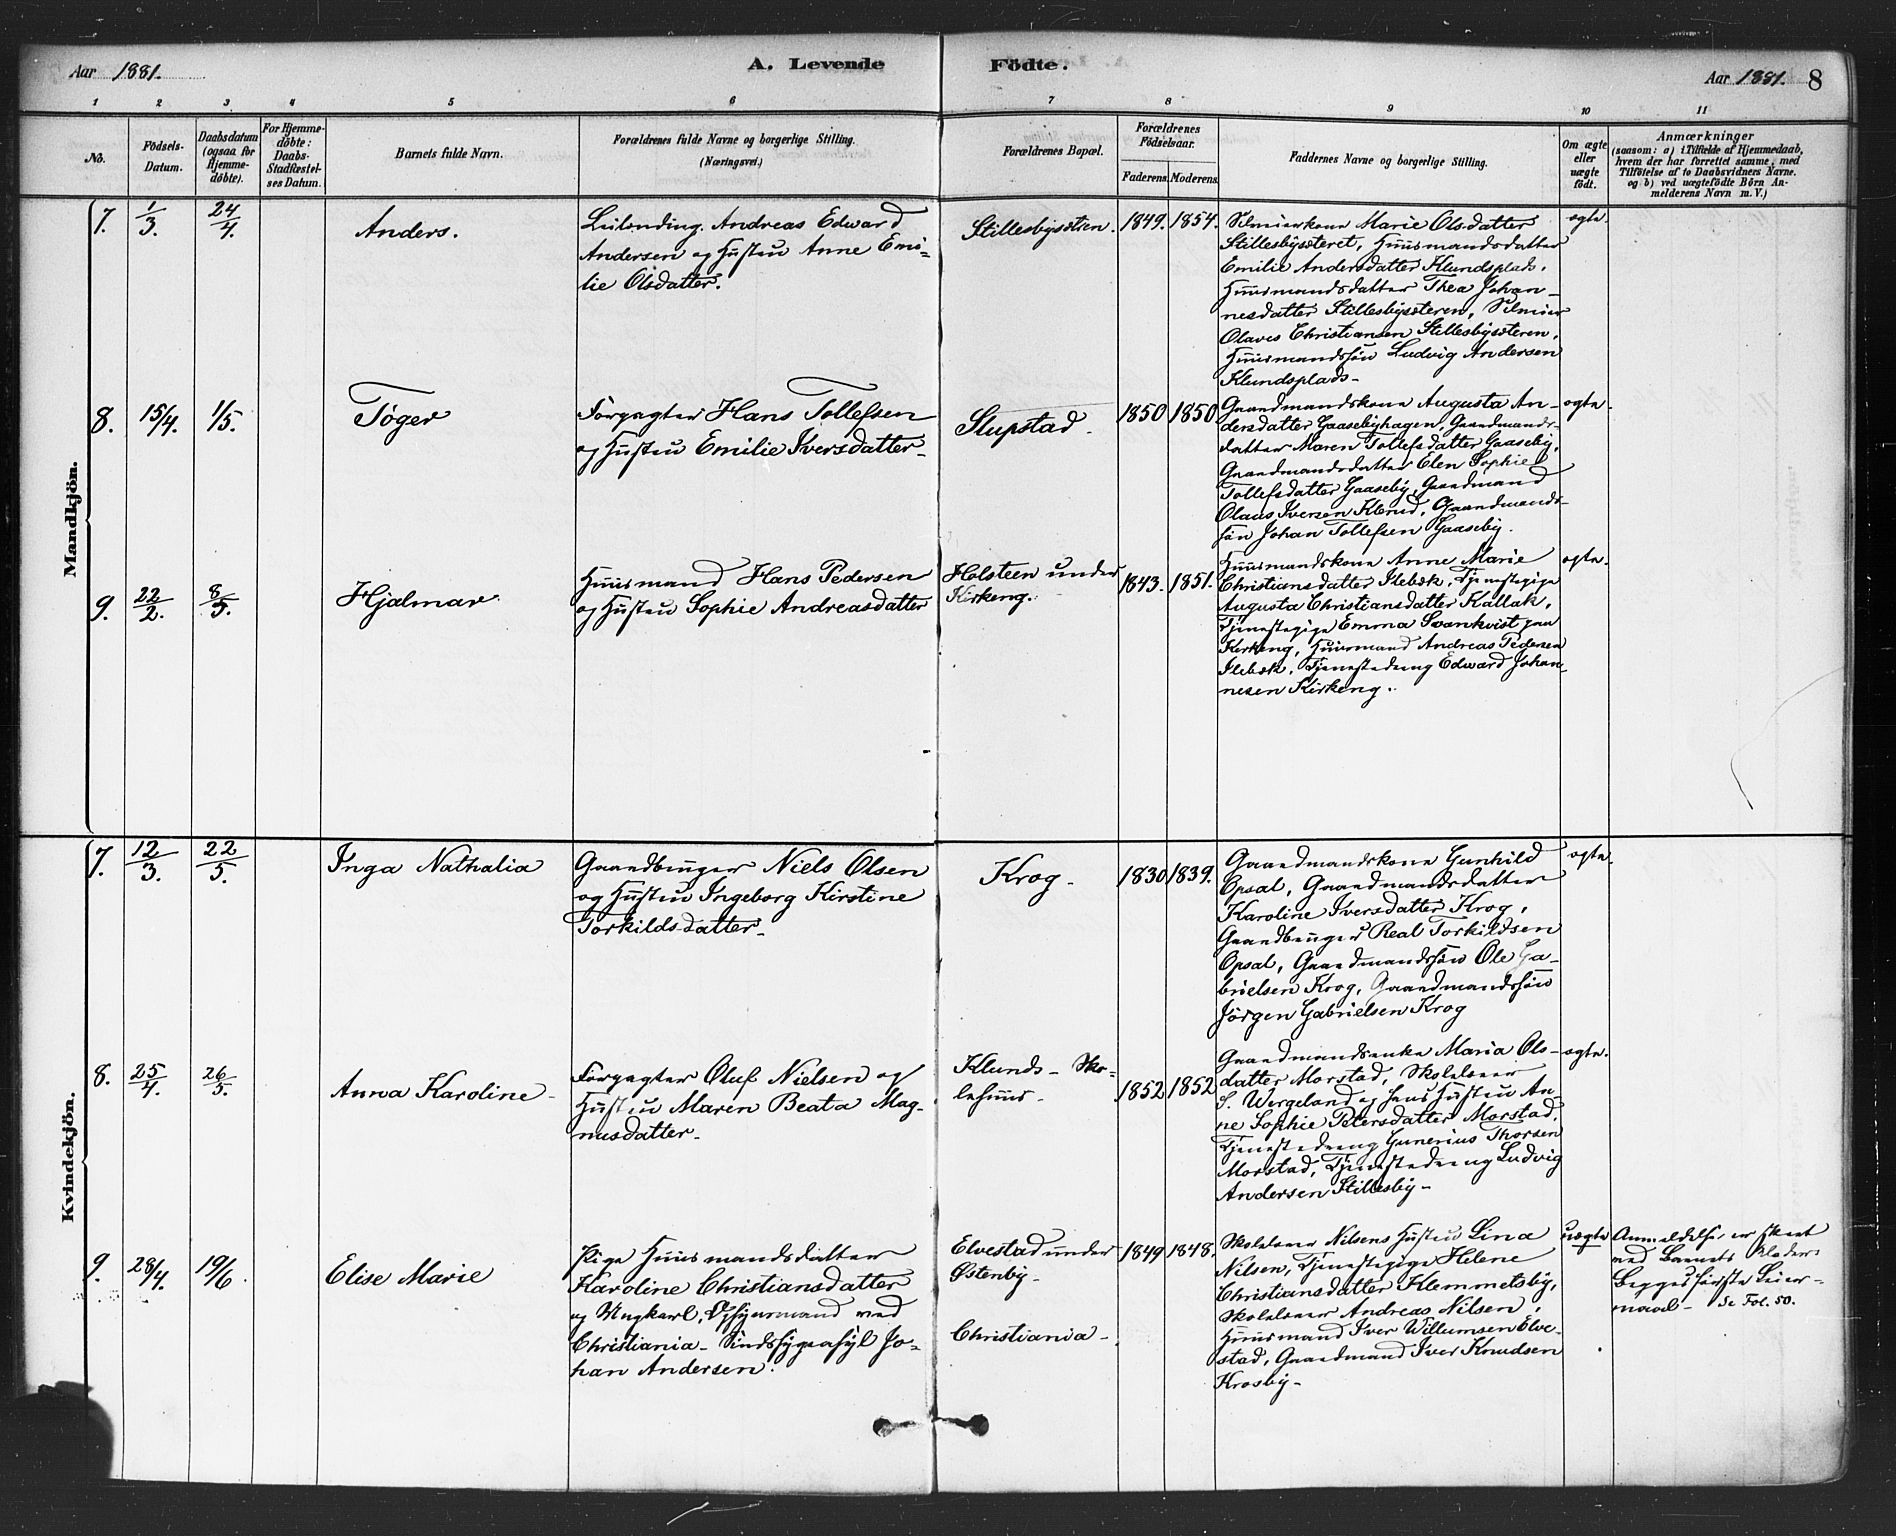 Aar 1881.
A. Levende
Födte.
Aar 1881. 8
1 2 3 4 5 6 7 8 9 10 11
No.
Födsels-
Datum.
Daabsdatum
(ogsaa for
Hjemme-
döbte).
For Hjemme-
döbte:
Daabs-
Stadfæstel-
ses Datum.
Barnets fulde Navn.
Forældrenes fulde Navne og borgerlige Stilling.
(Næringsvei.)
Forældrenes Bopæl.
Forældrenes
Födselsaar.
Faderens. Moderens.
Faddernes Navne og borgerlige Stilling.
Om ægte
eller
uægte
födt.
Anmærkninger
(saasom: a) i Tilfælde af Hjemmedaab,
hvem der har forrettet samme, med
Tilföielse af to Daabsvidners Navne.
og b) ved uægtefödte Börn An-
melderens Navn m. V.)
Mandkjön.
7. 1/3. 24/4.
Anders.
Leilending Andreas Edward
Andersen og Hustru Anne Emi-
lie Olsdatter.
Stillesbysæteren.
1849. 1854.
Selveierkone Marie Olsdatter
Stillesbysæteret, Huusmandsdatter
Emilie Andersdatter Klundsplads,
Huusmandsdatter Thea Johan-
nesdatter Stillesbysæteren, Selveier
Olaves Christiansen Stillesbysæteren,
Huusmandssön Ludvig Andersen
Klundsplads-
ægte.
8. 15/4. 1/5.
Töger
Forpagter Hans Tollefsen
og Hustru Emilie Iversdatter-
Slupstad.
1850 1850
Gaardmandskone Augusta An-
dersdatter Gaasebyhagen, Gaardmands-
datter Maren Tollefsdatter Gaaseby,
Gaardmandsdatter Elen Sophie
Tollefsdatter Gaaseby, Gaardmand
Olaus Iversen Klerud, Gaardmands-
sön Johan Tollefsen Gaaseby.
ægte.
9. 22/2. 8/5.
Hjalmar
Huusmand Hans Pedersen
og Hustru Sophie Andreasdatter
Holsteen under
Kirkeng.
1843. 1851.
Huusmandskone Anne Marie
Christiansdatter Ilebæk, Tjenestepige
Augusta Christiansdatter Kallak,
Tjenestepige Emma Svankvist paa
Kirkeng, Huusmand Andreas Pedersen
Ilebæk, Tjenestedreng Edward Johan-
nesen Kirkeng.
ægte.
Kvindekjön.
7. 12/3. 22/5.
Inga Nathalia
Gaardbruger Niels Olsen
og Hustru Ingeborg Kirstine
Torkildsdatter-
Krog-
1830 1839.
Gaardmandskone Gunhild
Opsal, Gaardmandsdatter
Karoline Iversdatter Krog,
Gaardbruger Real Torkildsen
Opsal, Gaardmandssön Ole Ga-
brielsen Krog, Gaardmandssön
Jörgen Gabrielsen Krog
ægte.
8. 25/4. 26/5.
Anna Karoline-
Forpagter Oluf Nielsen og
Hustru Maren Beata Mag-
nusdatter-
Klunds- Sko-
lehuus-
1852 1852
Gaardmandsenke Maria Ols-
datter Morstad, Skolelærer
S. Wergeland og hans Hustru An-
ne Sophie Petersdatter Morstad,
Tjenestedreng Gunerius Thorsen
Morstad, Tjenestedreng Ludvig
Andersen Stillesby-
ægte.
9. 28/4. 19/6.
Elise Marie
Pige Huusmandsdatter
Karoline Christiansdatter
og Ungkarl, Opsynsmand ved
Christiania- Sindssygeasyl Jo-
han Andersen.
Elvestad under
Østenby-
Christiania-
1849 1848.
Skolelærer Nilsens Hustru Lina
Nilsen, Tjenestepige Helene
Christiansdatter Klemmetsby,
Skolelærer Andreas Nilsen,
Huusmand Iver Willumsen Elve-
stad, Gaardmand Iver Knudsen
Krosby-
uægte
Anmeldelse er skeet
ved Barnets Fader.
Begges förste Leier-
maal- Se Fol. 50.